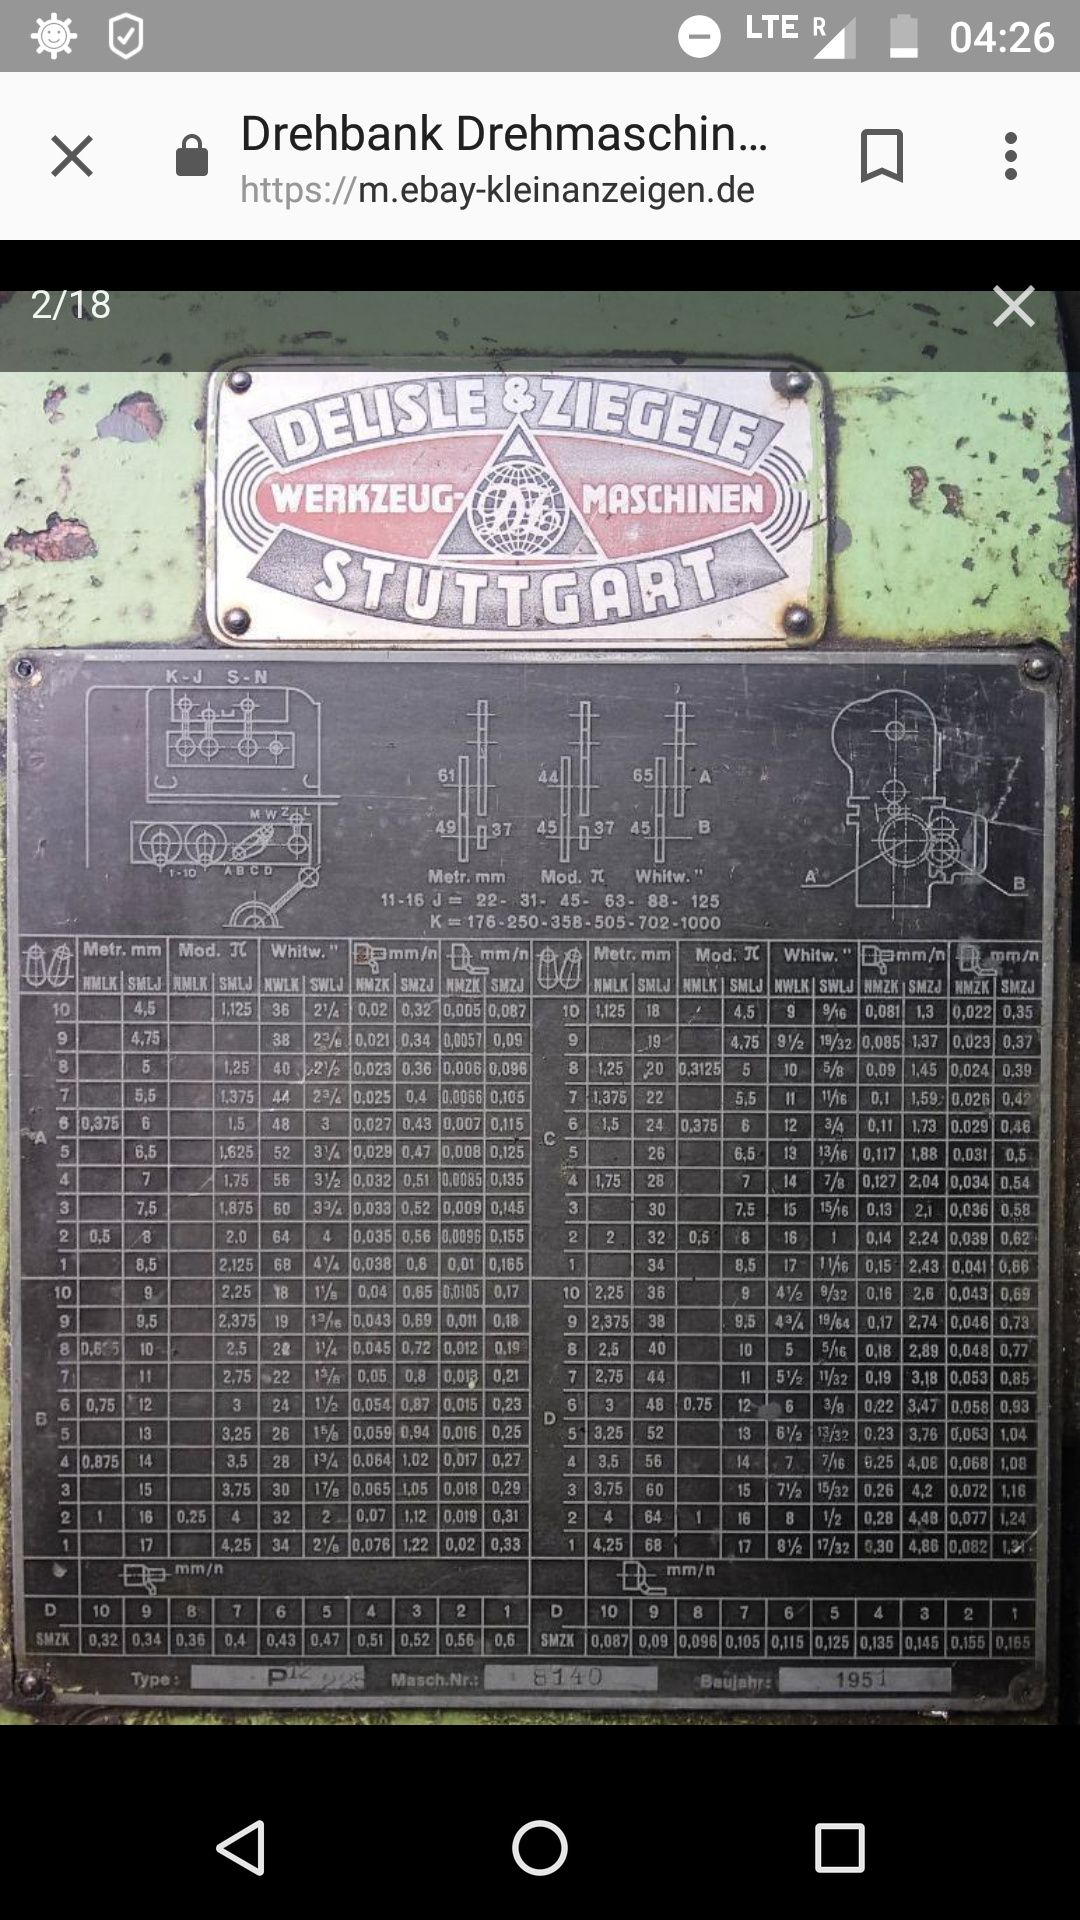 LTE R 04:26
Drehbank Drehmaschin...
https://m.ebay-kleinanzeigen.de
2/18
DELISLE & ZIEGELE
WERKZEUG- MASCHINEN
STUTTGART
K-J S-N
61 44 65 A
M W Z L
49 37 45 37 45 B
1-10 A B C D
A B
Metr. mm Mod. π Whitw."
11-16 J = 22- 31- 45- 63- 88- 125
K = 176-250-358-505-702-1000
Metr. mm Mod. π Whitw." mm/n mm/n Metr. mm Mod. π Whitw." mm/n mm/n
NMLK SMLJ NMLK SMLJ NWLK SWLJ NMZK SMZJ NMZK SMZJ NMLK SMLJ NMLK SMLJ NWLK SWLJ NMZK SMZJ NMZK SMZJ
10 4,5 1,125 36 2¼ 0,02 0,32 0,005 0,087 10 1,125 18 4,5 9 9/16 0,081 1,3 0,022 0,35
9 4,75 38 2⅜ 0,021 0,34 0,0057 0,09 9 19 4,75 9½ 19/32 0,085 1,37 0,023 0,37
8 5 1,25 40 2½ 0,023 0,36 0,006 0,096 8 1,25 20 0,3125 5 10 5/8 0,09 1,45 0,024 0,39
7 5,5 1,375 44 2¾ 0,025 0,4 0,0066 0,105 7 1,375 22 5,5 11 11/16 0,1 1,59 0,026 0,42
A 6 0,375 6 1,5 48 3 0,027 0,43 0,007 0,115 C 6 1,5 24 0,375 6 12 3/4 0,11 1,73 0,029 0,46
5 6,5 1,625 52 3¼ 0,029 0,47 0,008 0,125 5 26 6,5 13 13/16 0,117 1,88 0,031 0,5
4 7 1,75 56 3½ 0,032 0,51 0,0085 0,135 4 1,75 28 7 14 7/8 0,127 2,04 0,034 0,54
3 7,5 1,875 60 3¾ 0,033 0,52 0,009 0,145 3 30 7,5 15 15/16 0,13 2,1 0,036 0,58
2 0,5 8 2.0 64 4 0,035 0,56 0,0096 0,155 2 2 32 0,5 8 16 1 0,14 2,24 0,039 0,62
1 8,5 2,125 68 4¼ 0,038 0,6 0,01 0,165 1 34 8,5 17 1 1/16 0,15 2,43 0,041 0,66
10 9 2,25 18 1⅛ 0,04 0,65 0,0105 0,17 10 2,25 36 9 4½ 9/32 0,16 2,6 0,043 0,69
9 9,5 2,375 19 1 3/16 0,043 0,69 0,011 0,18 9 2,375 38 9,5 4¾ 19/64 0,17 2,74 0,046 0,73
8 10 2.5 1¼ 0,045 0,72 0,012 0,19 8 2,5 40 10 5 5/16 0,18 2,89 0,048 0,77
7 11 2,75 22 0,05 0,8 0,013 0,21 7 2,75 44 11 5½ 11/32 0,19 3,18 0,053 0,85
B 6 0,75 12 3 24 1½ 0,054 0,87 0,015 0,23 D 6 3 48 0.75 12 6 3/8 0,22 3,47 0,058 0,93
5 13 3,25 26 1⅝ 0,059 0,94 0,016 0,25 5 3,25 52 13 6½ 13/32 0.23 3,76 0,063 1,04
4 0,875 14 3,5 28 1¾ 0,064 1,02 0,017 0,27 4 3,5 56 14 7 7/16 0,25 4,08 0,068 1,08
3 15 3,75 30 1⅞ 0,065 1,05 0,018 0,29 3 3,75 60 15 7½ 15/32 0,26 4,2 0,072 1,16
2 1 16 0,25 4 32 2 0,07 1,12 0,019 0,31 2 4 64 1 16 8 1/2 0,28 4,48 0,077 1,24
1 17 4,25 34 2⅛ 0,076 1,22 0,02 0,33 1 4,25 68 17 8½ 17/32 0,30 4,86 0,082
mm/n mm/n
D 10 9 8 7 6 5 4 3 2 1 D 10 9 8 7 6 5 4 3 2 1
SMZK 0,32 0,34 0,36 0,4 0,43 0,47 0,51 0,52 0,56 0,6 SMZK 0,087 0,09 0,096 0,105 0,115 0,125 0,135 0,145 0,155 0,165
Type: P12 Masch.Nr.: 8140 Baujahr: 1951